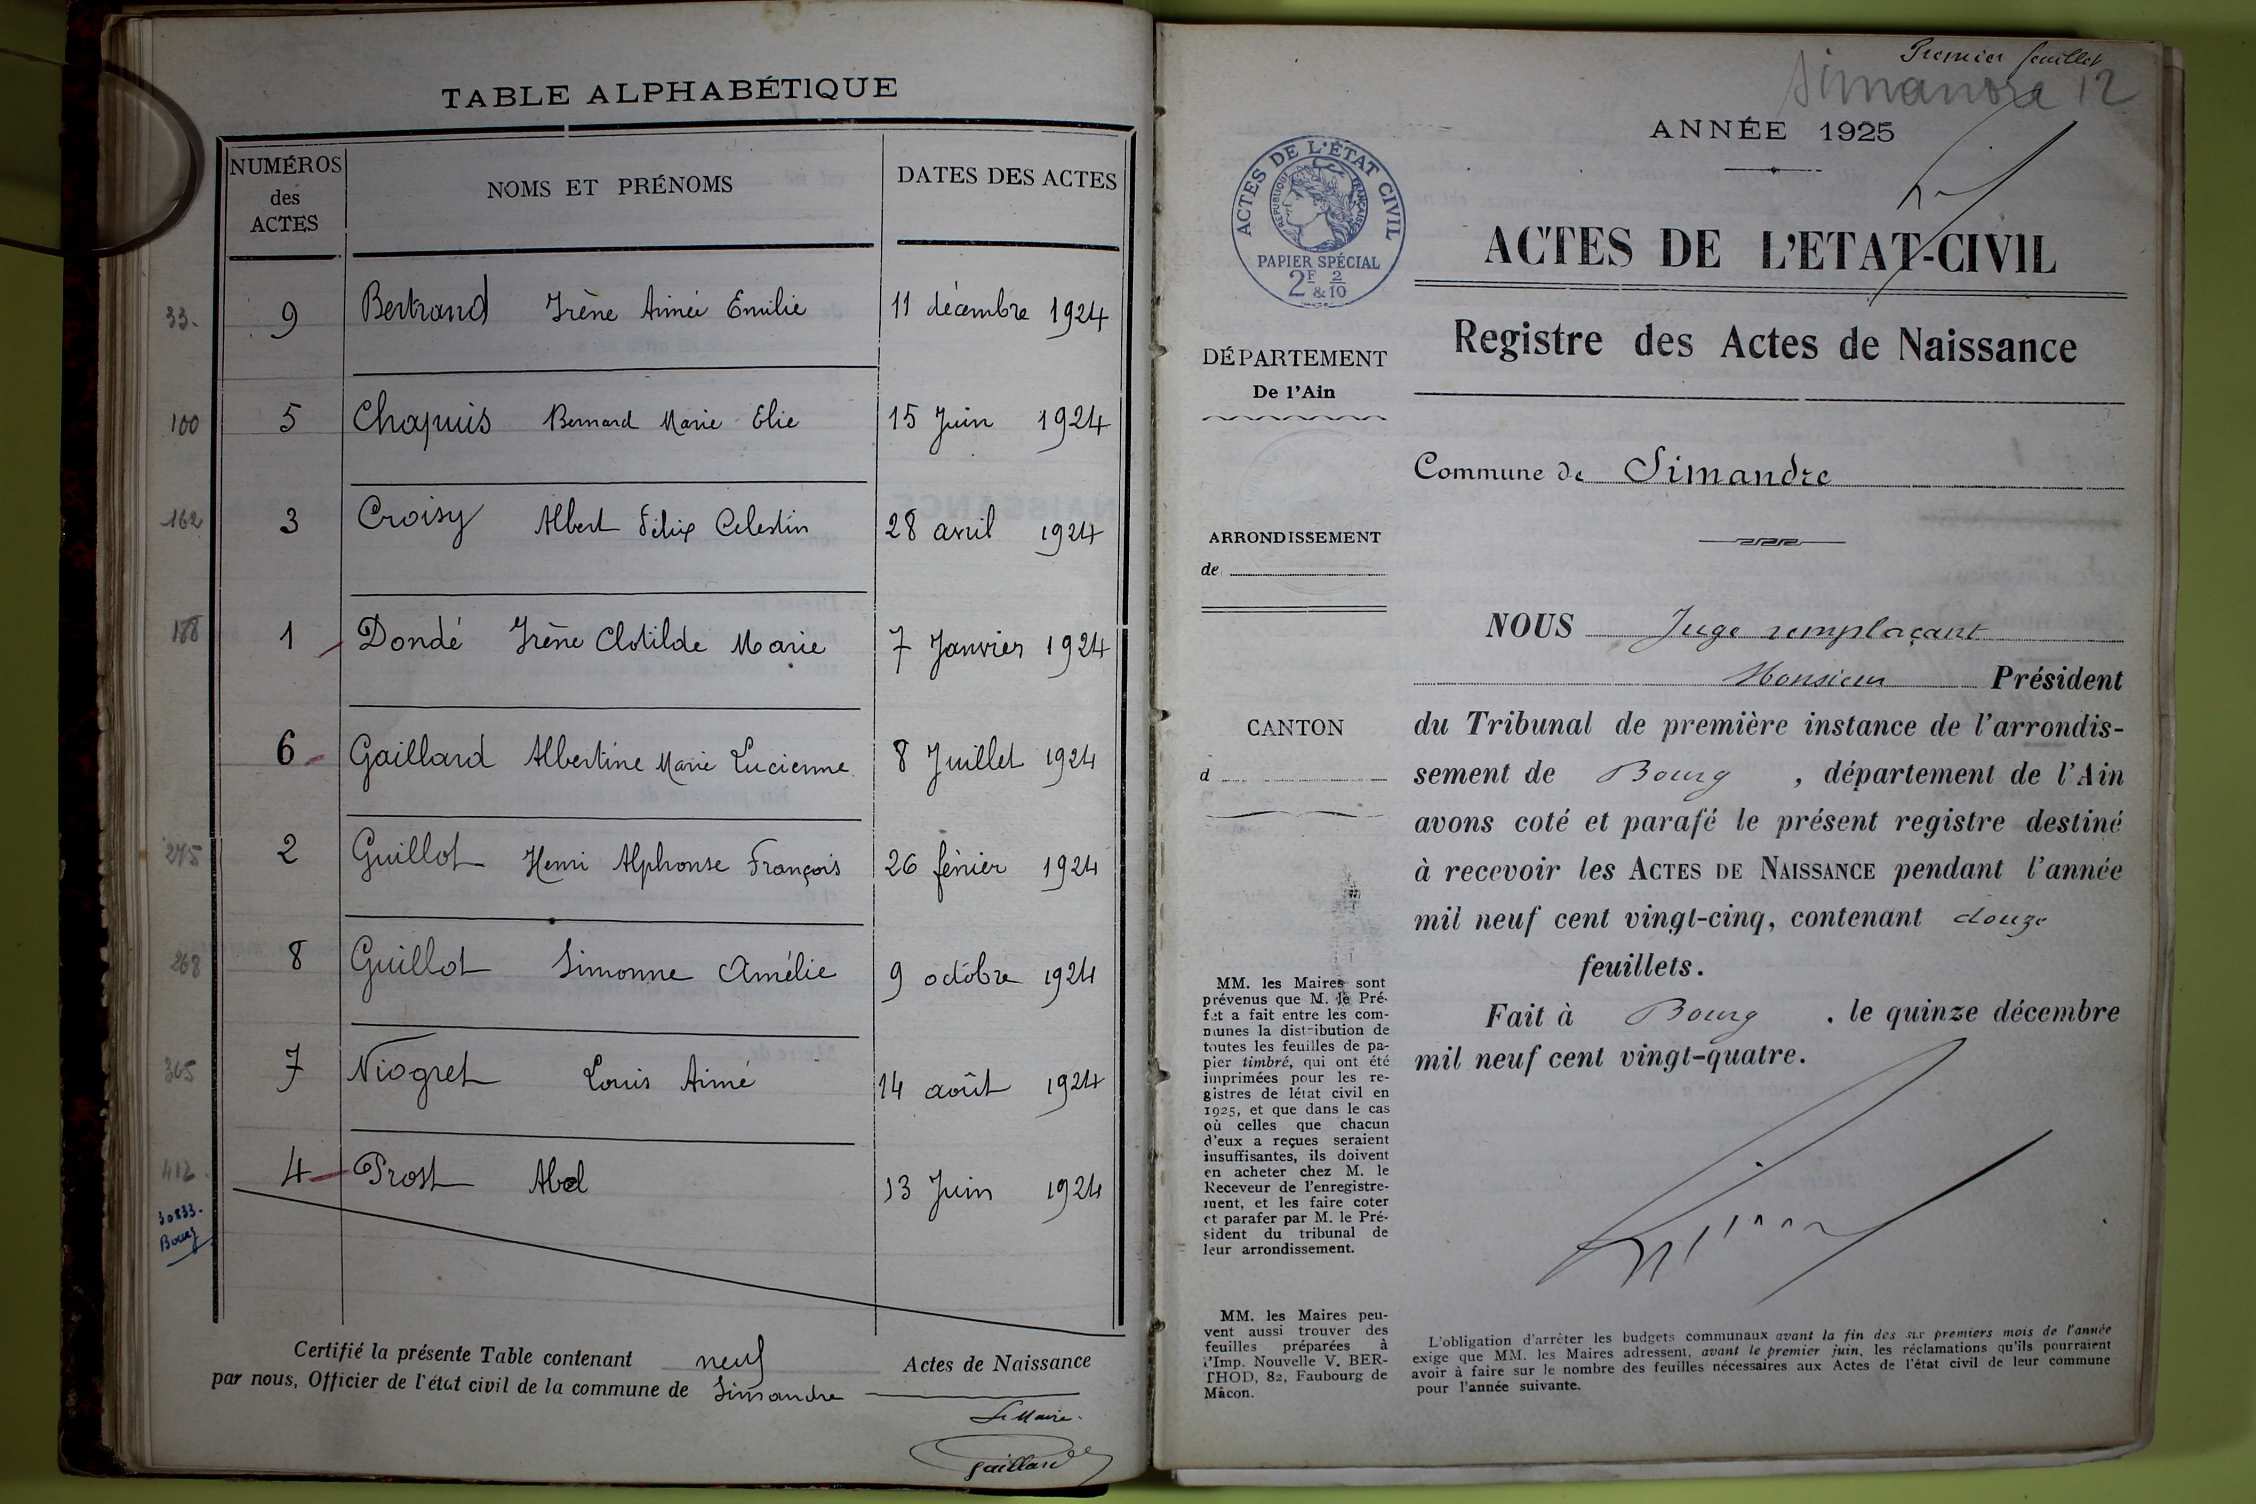 TABLE ALPHABÉTIQUE
NUMÉROS des ACTES NOMS ET PRÉNOMS DATES DES ACTES
33. 9 Bertrand Irène Aimée Emilie 11 décembre 1924
100 5 Chapuis Bernard Marie Elie 15 Juin 1924
162 3 Croisy Albert Félix Celestin 28 avril 1924
188 1 Dondé Irène Clotilde Marie 7 Janvier 1924
6 Gaillard Albertine Marie Lucienne 8 Juillet 1924
275 2 Guillot Henri Alphonse François 26 février 1924
268 8 Guillot Simonne Amélie 9 octobre 1924
365 7 Niogret Louis Aimé 14 août 1924
412 4 Prost Abel 13 Juin 1924
30833.
Bourg
Certifié la présente Table contenant neuf Actes de Naissance
par nous, Officier de l'état civil de la commune de Simandre
Le Maire.
Gaillard
Premier feuillet
Simandre 12
ANNÉE 1925
ACTES DE L'ÉTAT CIVIL
RÉPUBLIQUE FRANÇAISE
PAPIER SPÉCIAL
2F & 2/10
ACTES DE L'ETAT-CIVIL
Registre des Actes de Naissance
DÉPARTEMENT
De l'Ain
Commune de Simandre
ARRONDISSEMENT
de
CANTON
d
NOUS Juge remplaçant
Monsieur Président
du Tribunal de première instance de l'arrondis-
sement de Bourg, département de l'Ain
avons coté et parafé le présent registre destiné
à recevoir les ACTES DE NAISSANCE pendant l'année
mil neuf cent vingt-cinq, contenant douze
feuillets.
Fait à Bourg, le quinze décembre
mil neuf cent vingt-quatre.
MM. les Maires sont
prévenus que M. le Pré-
fet a fait entre les com-
munes la distribution de
toutes les feuilles de pa-
pier timbré, qui ont été
imprimées pour les re-
gistres de létat civil en
1925, et que dans le cas
où celles que chacun
d'eux a reçues seraient
insuffisantes, ils doivent
en acheter chez M. le
Receveur de l'enregistre-
ment, et les faire coter
et parafer par M. le Pré-
sident du tribunal de
leur arrondissement.
MM. les Maires peu-
vent aussi trouver des
feuilles préparées à
l'Imp. Nouvelle V. BER-
THOD, 82, Faubourg de
Mâcon.
L'obligation d'arrêter les budgets communaux avant la fin des six premiers mois de l'année
exige que MM. les Maires adressent, avant le premier juin, les réclamations qu'ils pourraient
avoir à faire sur le nombre des feuilles nécessaires aux Actes de l'état civil de leur commune
pour l'année suivante.